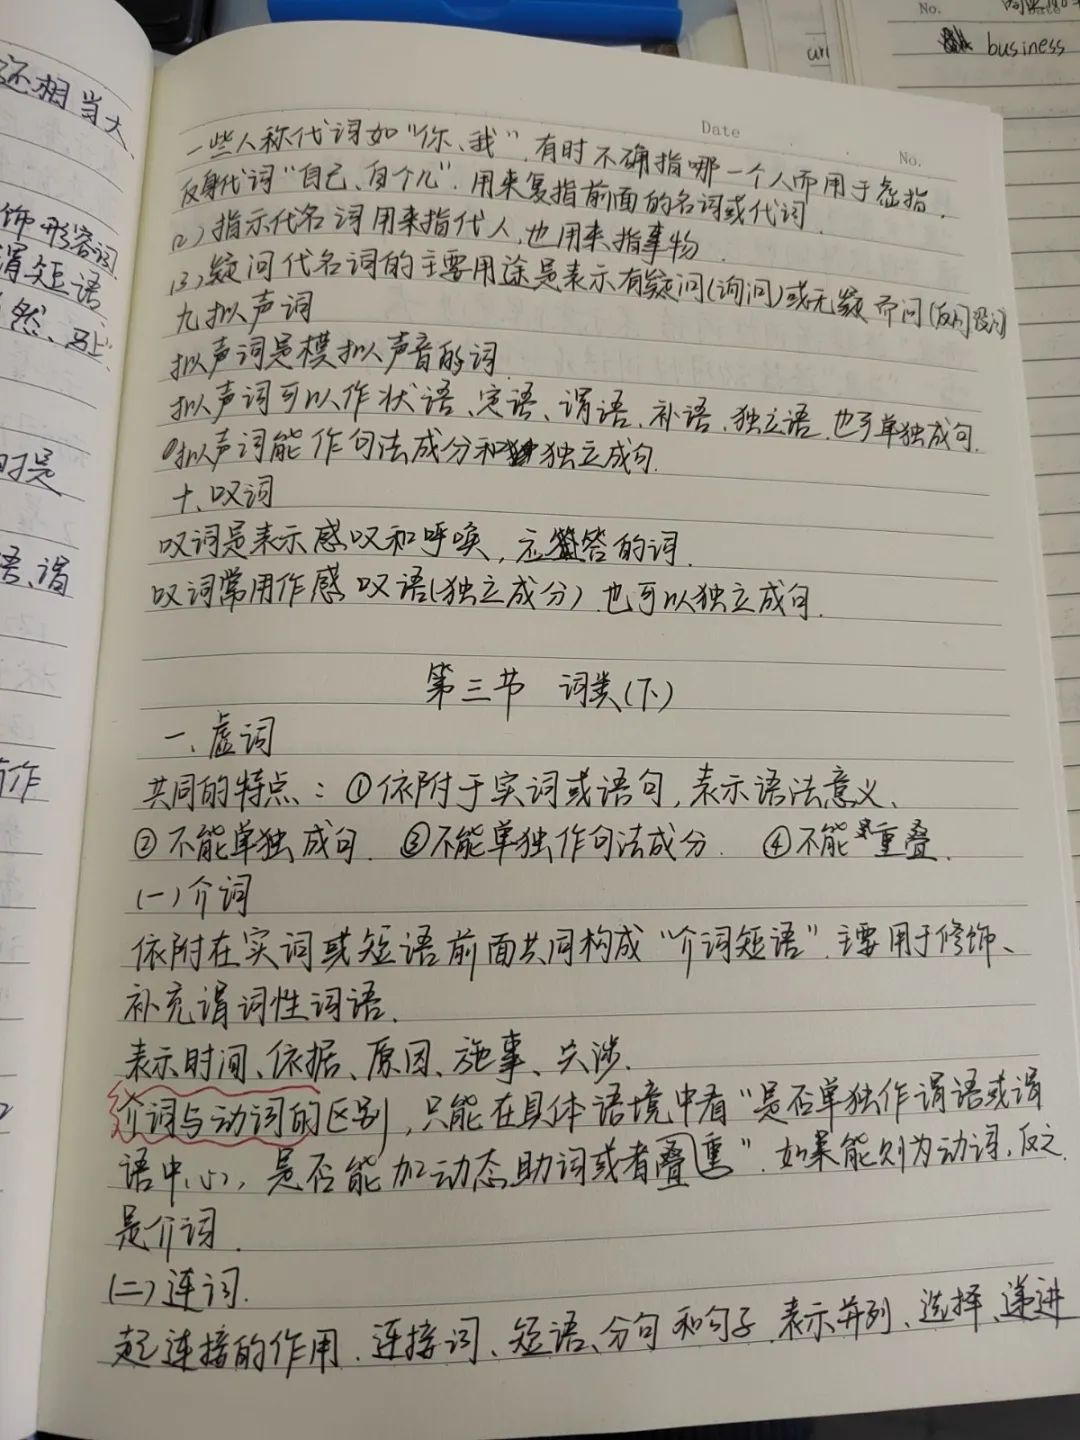 还相当大、
饰形容词
谓短语
然、马上
时是
语、谓
前作
No.
Date
business
Date
No.
一些人称代词如“你、我”.有时不确指哪一个人而用于虚指.
反身代词“自己、自个儿”.用来复指前面的名词或代词.
(2)指示代名词用来指代人,也用来指事物.
(3)疑问代名词的主要用途是表示有疑问(询问)或无疑而问(反问设问)
九拟声词
拟声词是模拟声音的词.
拟声词可以作状语、定语、谓语、补语、独立语.也可单独成句.
拟声词能作句法成分和独立成句.
十、叹词
叹词是表示感叹和呼唤,应答的词.
叹词常用作感叹语(独立成分).也可以独立成句.
第三节 词类(下)
一、虚词
共同的特点:①依附于实词或语句,表示语法意义、
②不能单独成句. ③不能单独作句法成分. ④不能重叠.
(一)介词
依附在实词或短语前面共同构成“介词短语”.主要用于修饰、
补充谓词性词语.
表示时间、依据、原因、施事、关涉.
介词与动词的区别,只能在具体语境中看“是否单独作谓语或谓
语中心,是否能加动态助词或者叠重”.如果能则为动词,反之
是介词.
(二)连词.
起连接的作用.连接词、短语、分句和句子.表示并列、选择、递进